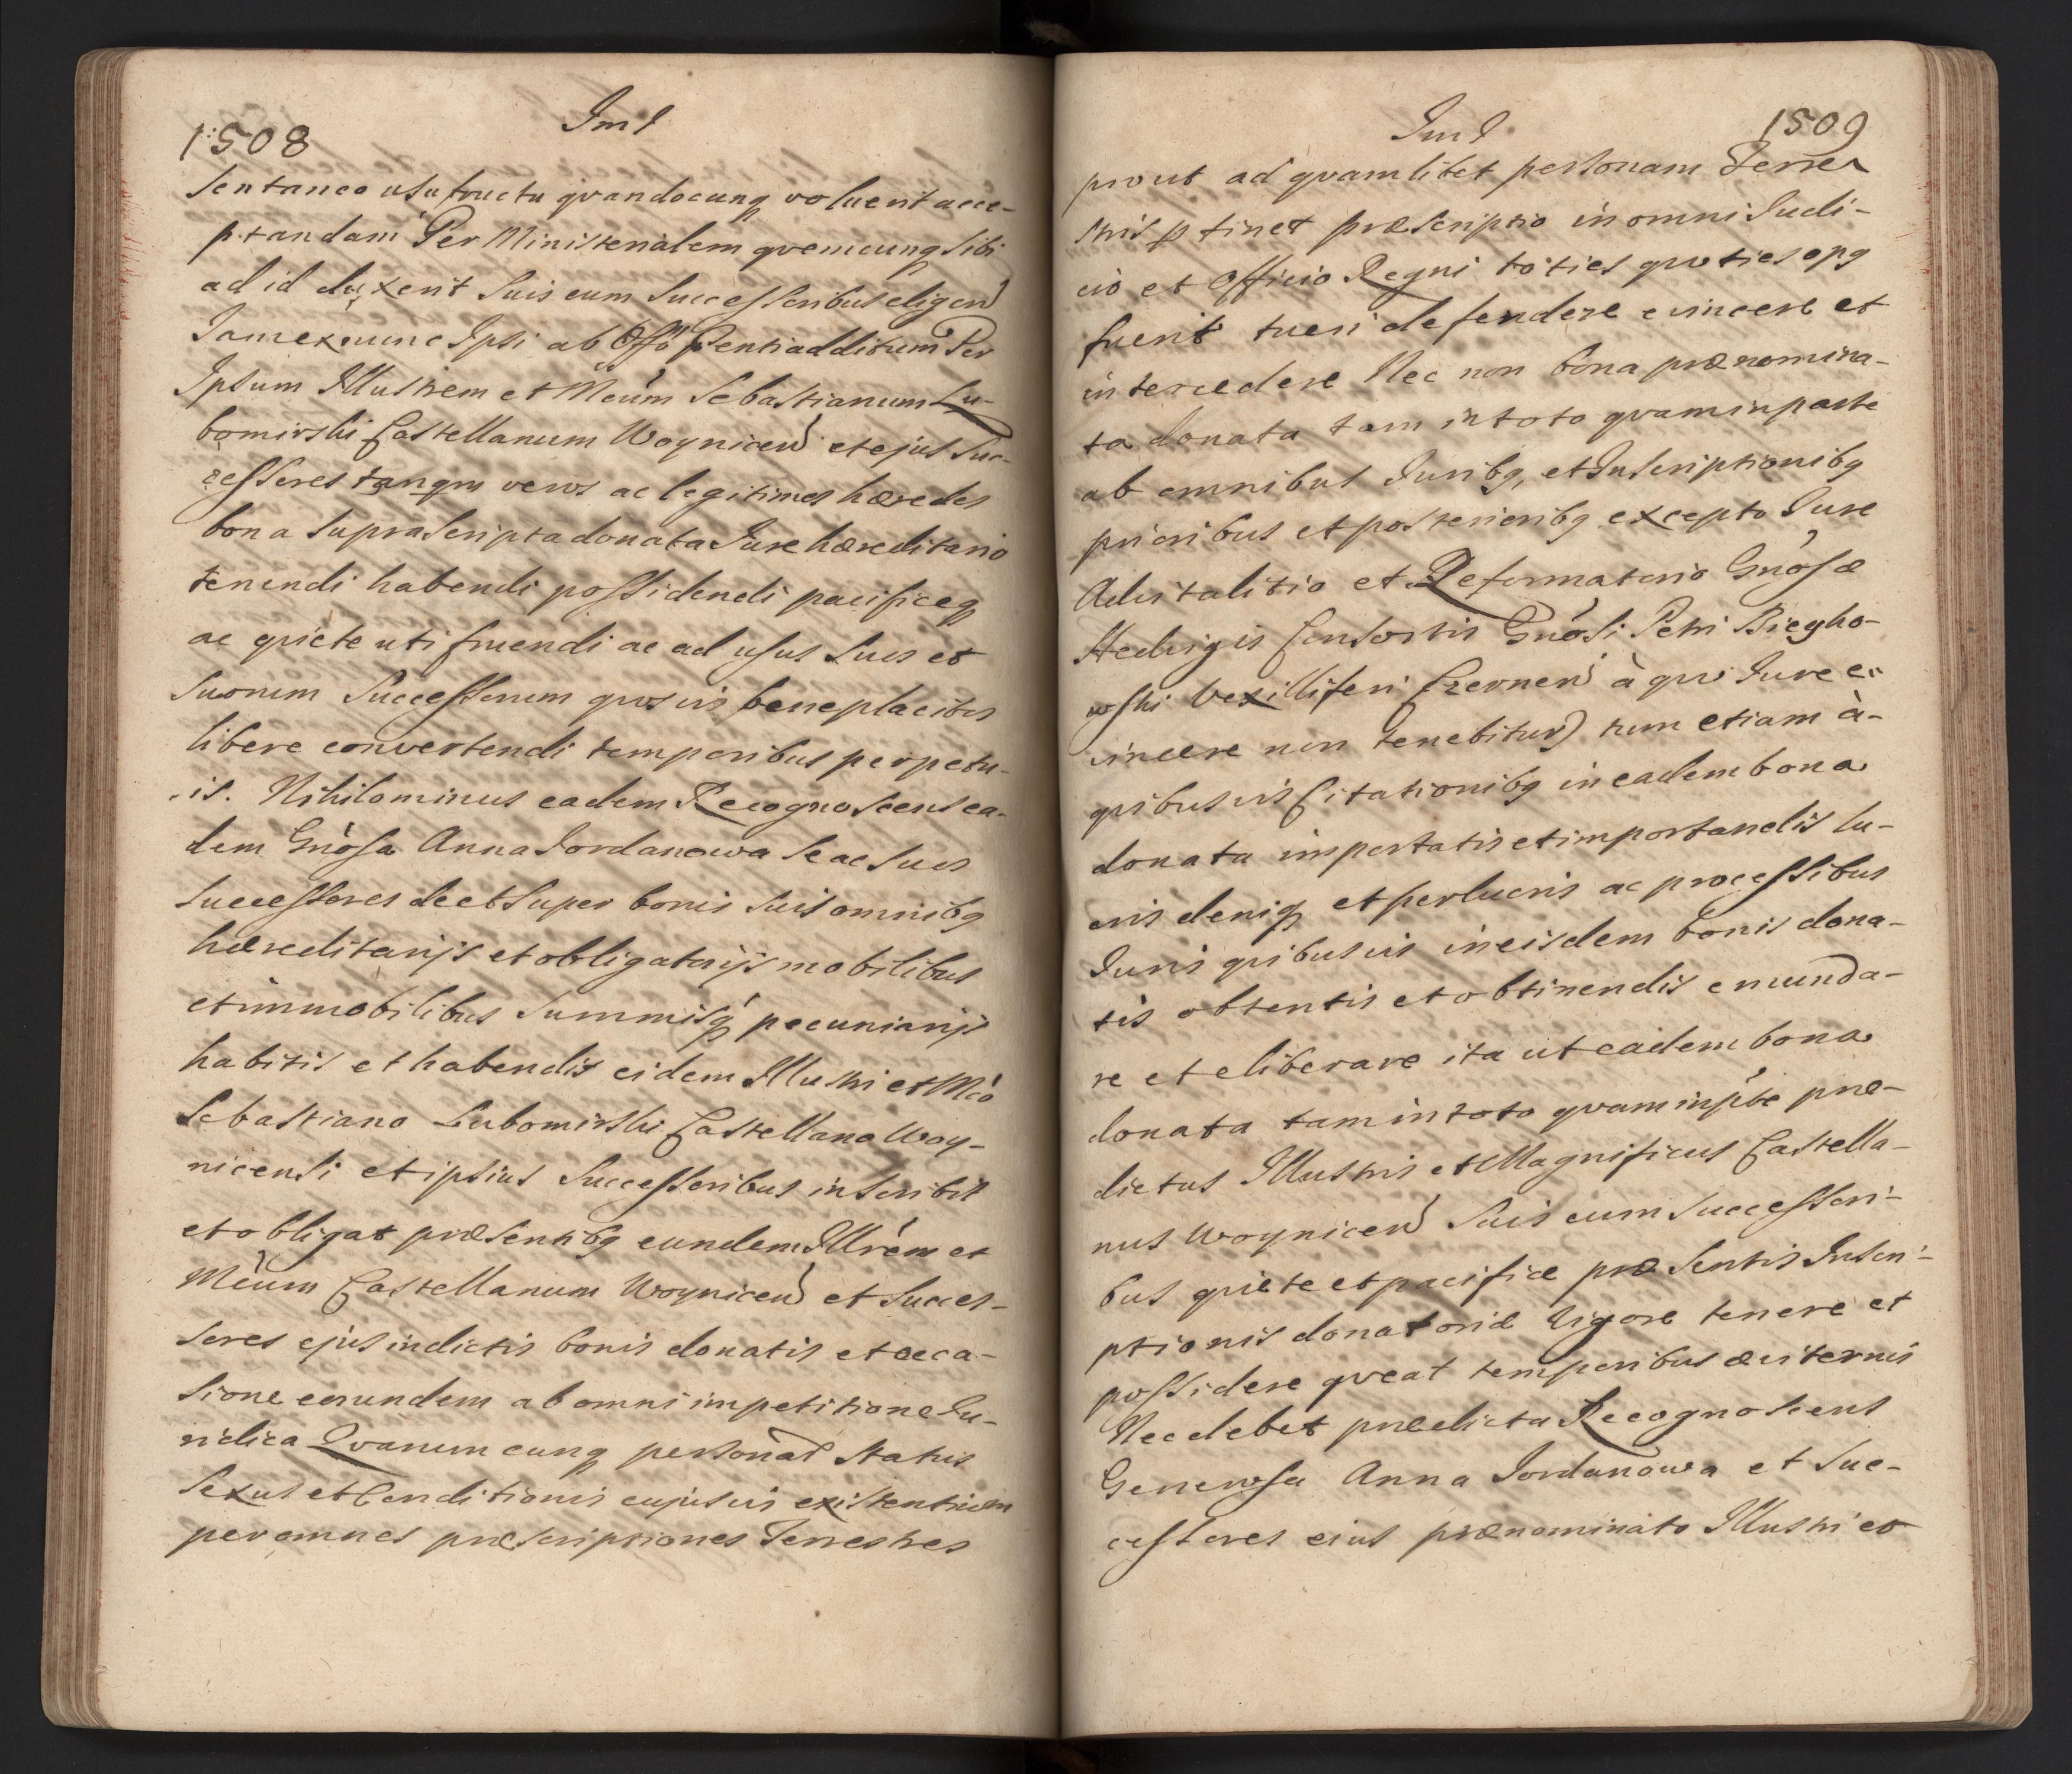 1508
Iml
sentaneo usufructu qvandocunq voluerit acce-
ptandam Per Ministerialem qvemcunq sibi
ad id duxerit suis cum successoribus eligend
Iam ex nunc Ipsi ab Offo Pnti additum Per
Ipsum Illustrem et Mcum Sebastianum Lu-
bomirski Castellanum Woynicen et ejus suc-
cessores tanqm veros ac legitimos hæredes
bona suprascripta donata Iure hæreditario
tenendi habendi possidendi pacificeq
ac qviete uti fruendi ac ad usus suos et
suorum successorum qvosvis beneplacitos
libere convertendi temporibus perpetu-
is. Nihilominus eadem Recognoscens ea-
dem Gnosa Anna Iordanowa se ac suos
successores de et super bonis suis omnibq
hæreditarijs et obligatorijs mobilibus
et immobilibus summisq pecuniarijs
habitis et habendis eidem Illustri et Mco
Sebastiano Lubomirski Castellano Woy-
nicensi et ipsius successoribus inscribit
et obligat præsentibq eundem Illrem et
Mcum Castellanum Woynicen et succes-
sores ejus in dictis bonis donatis et occa-
sione eorundem ab omni impetitione Iu-
ridica Qvarumcunq personar status
sexus et Conditionis cujusvis existentium
per omnes præscriptiones Terrestres
Iml
1509
prout ad qvamlibet personam Terre
stris ptinet præscriptio in omni Iudi-
cio et Officio Regni toties qvoties opq
fuerit tueri defendere evincere et
intercedere Nec non bona prænomina-
ta donata tam in toto qvam in parte
ab omnibus Iuribq, et Inscriptionibq
prioribus et posterioribq excepto Iure
Advitalitio et Reformatorio Gnosæ
Hedvigis Consortis Gnosi Petri Biegho-
wski Vexilliferi Czernen à qvo Iure e-
vincere non tenebitur) tum etiam à-
qvibusvis Citationibq in eadem bona
donata importatis et importandis lu-
cris deniq et perlucris ac processibus
Iuris qvibusvis in eisdem bonis dona-
tis obtentis et obtinendis emunda-
re et eliberare ita ut eadem bona
donata tam in toto qvam in pte præ-
dictus Illustris et Magnificus Castella-
nus Woynicen suis cum successori-
bus qviete et pacifice præsentis Inscri-
ptionis donatoriæ vigore tenere et
possidere qveat temporibus æviternis
Nec debet prædicta Recognoscens
Generosa Anna Iordanowa et suc-
cessores eius prænominato Illustri et